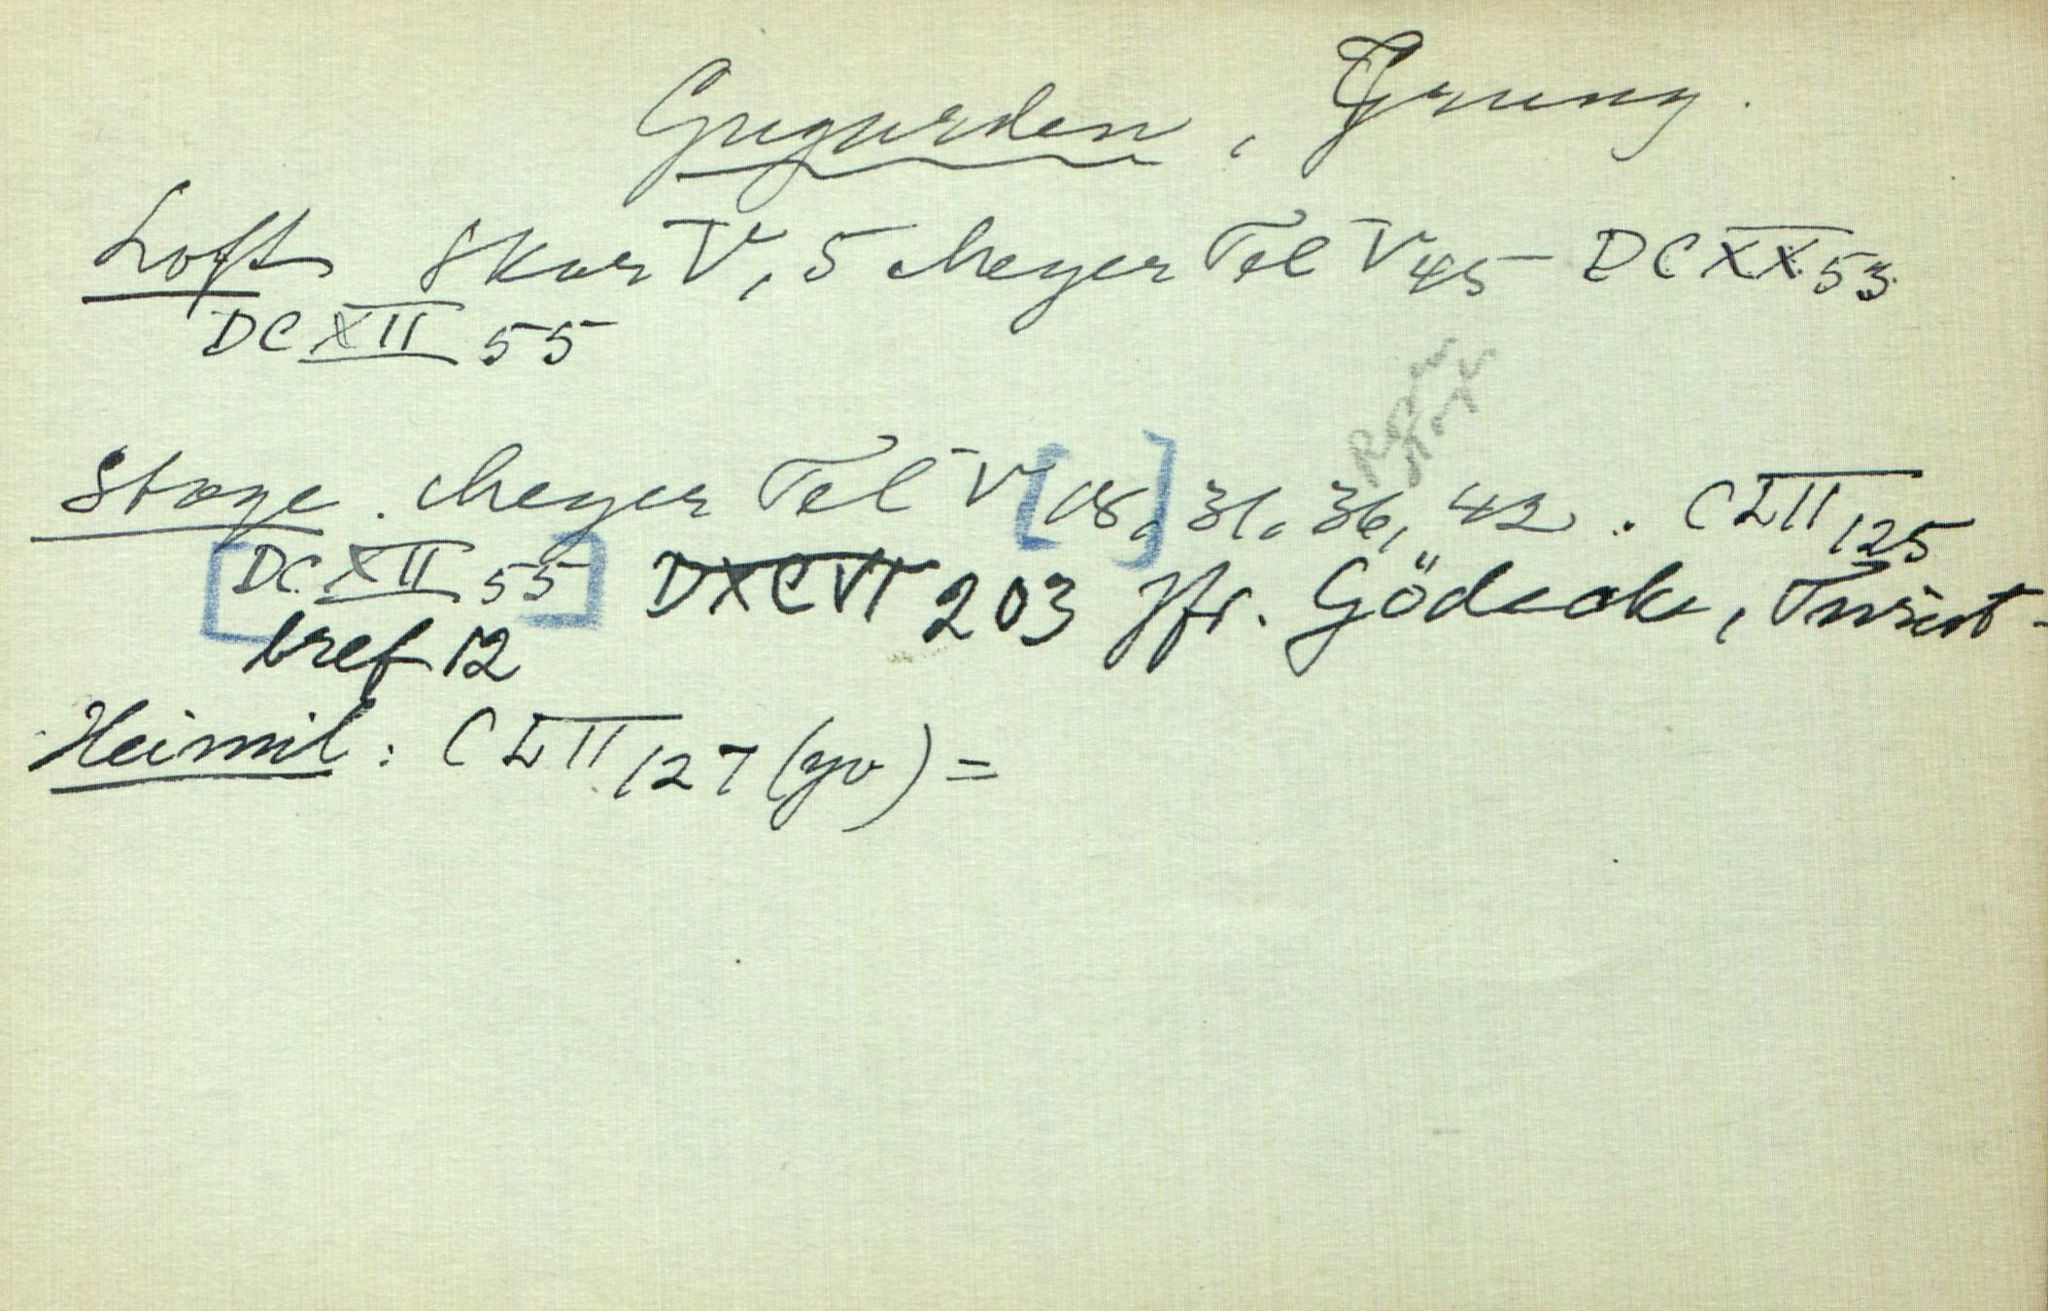 Gugarden, Grung.
Loft Skar V, 5 Meyer Tel V 45 DCXX 53
DCXII 55
Stoge. Meyer Tel V [18,] 31, 36, 42. CLII 125
[DCXII 55] DXCVI 203 Jfr. Gödecke, Twist-
bref 12
Heimil: CLII 127 (yv) =